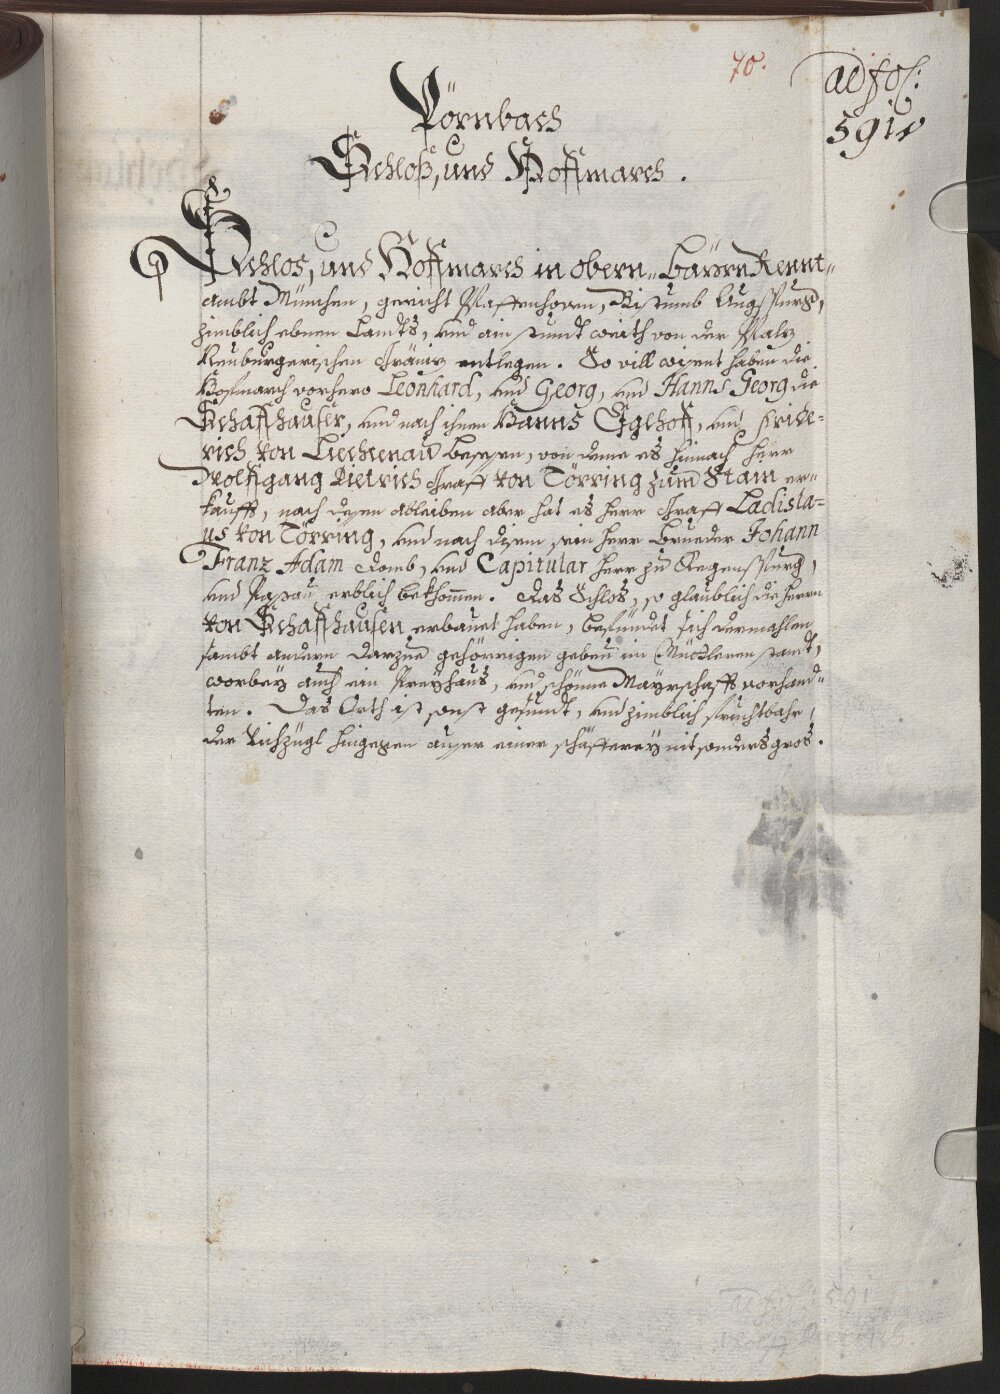 70.
ad fol:
591.
Pörnbach
Schloß, und Hoffmarch.
Schlos, und Hoffmarch in obern Bäyrn Rennt-
ambt München, gericht Pfaffenhoven, Bistumb Augspurg,
zimblich ebnen Landts, und ain stundt weith von der Pfalz
Neuburgerischen Gräniz entlegen. So vill wissent haben die
Hofmarch vorhero Leonhard, und Georg, und Hanns Georg die
Schaffhauser, und nach ihnen Hanns Eglhoff, und Fride-
rich von Liechtenau besessen, von deme es hinnach Herr
Wolffgang Dietrich Graff von Törring zum Stain er-
kaufft, nach dessen ableiben aber hat es Herr Graff Ladisla-
us von Törring, und nach disem sein Herr Brueder Johann
Franz Adam Domb, und Capitular Herr zu Regenspurg,
und Passau erblich bekhommen. Das Schlos, so glaublich die Herrn
von Schaffhausen erbauet haben, befündet sich dermahlen
sambt andern darzue gehörrigen gebeu im Mittleren standt,
worbey auch ein Preyhaus, und schönne Mayrschafft vorhand-
ten. Das Orth ist sonst gesundt, und zimblich fruchtbahr,
der Vichzügl hingegen ausser einer schäfferey nit sonders gros.
ad fol. 591